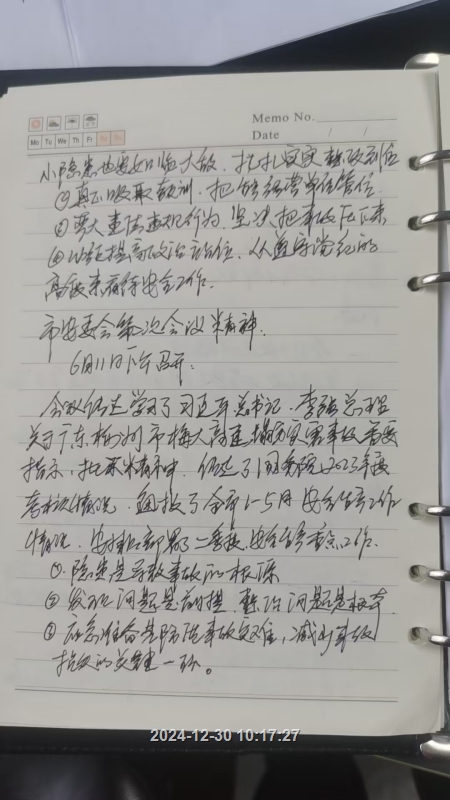 Memo No.
Mo Tu We Th Fr Sa Su
Date / /
小隐患也要如临大敌、扎扎实实整改到位
③真正吸取教训、把 经营单位管住
④ 重大违法违规行为、坚决把事故压下来
⑥ 提高政治站位、从遵守党纪的
高度来看待安全工作.
市安委会第 次会议精神.
6月11日下午召开:
会议传达学习了习近平总书记、李强总理
关于广东梅州市梅大高速塌方灾害事故重要
指示、批示精神、传达了国务院2023年度
考核情况、通报了全市1-5月安全生产工作
情况、安排部署了二季度安全生产重点工作.
① 隐患是导致事故的根源
② 发现问题是前提、整改问题是根本
③ 应急准备是防范事故灾难,减少事故
损失的关键一环。
2024-12-30 10:17:27